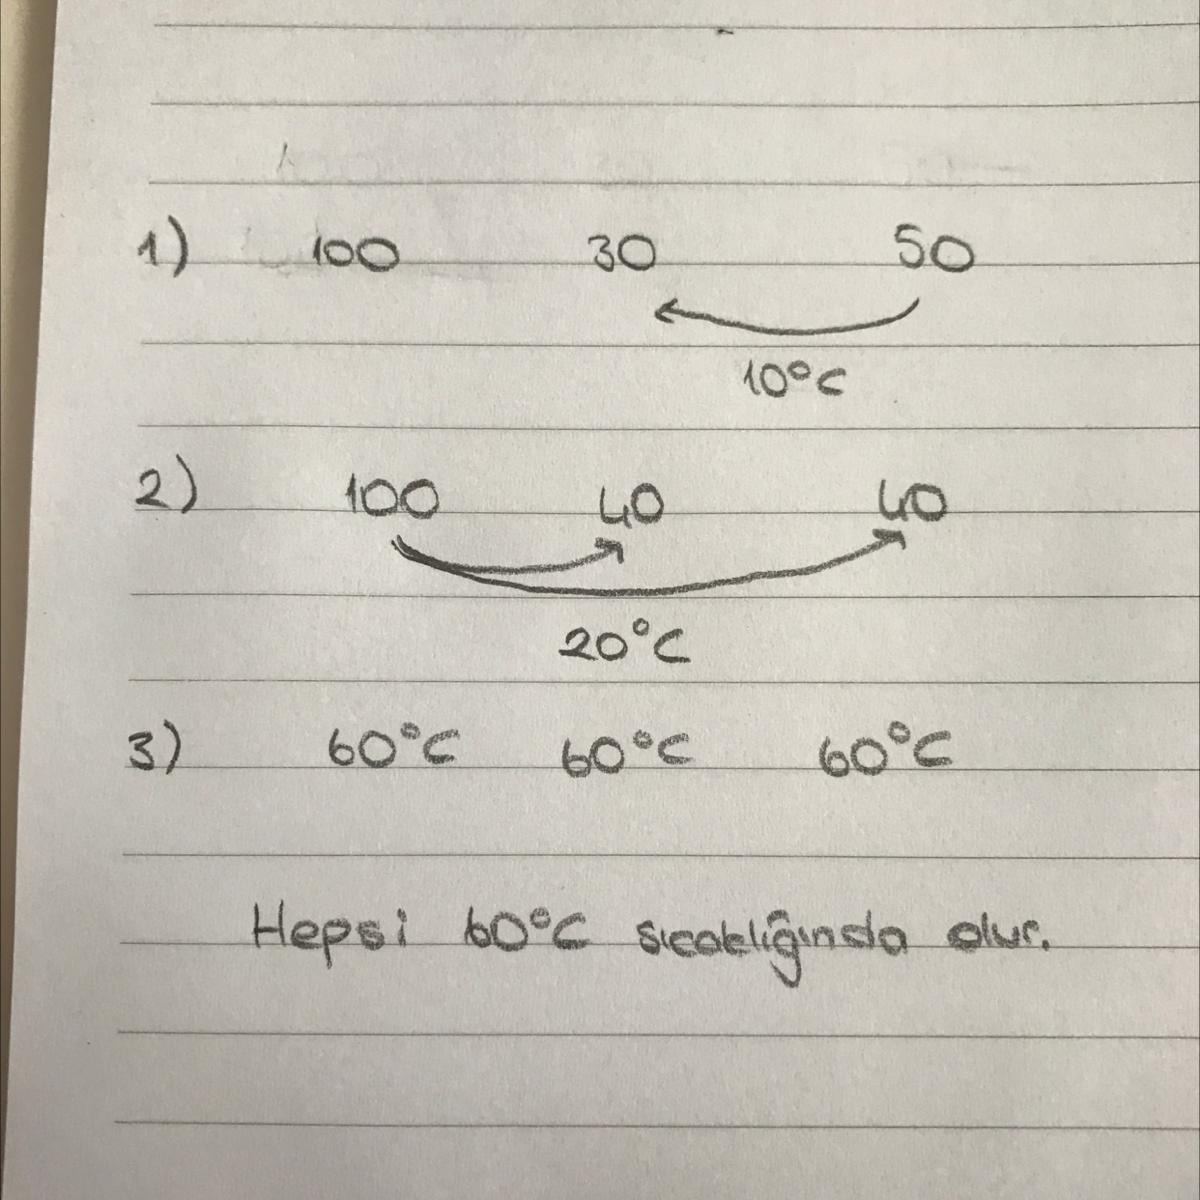 1) 100 30 50
10°C
2) 100 40 40
20°C
3) 60°C 60°C 60°C
Hepsi 60°C sıcaklığında olur.